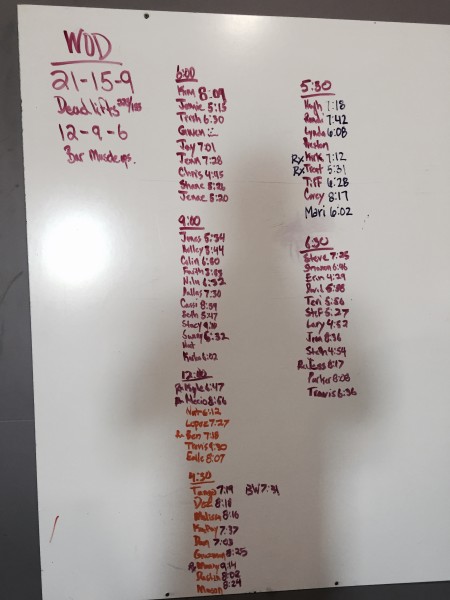 WOD
21-15-9
Deadlifts
12-9-6
Bar Muscle ups
6:00
Kim 8:09
Jamie 5:15
Trish 6:30
Gwen
Joy 7:01
Jenn 7:28
Chris 4:45
Shane 5:26
Jenae 5:20
9:00
Jones 5:34
8:44
Colin 6:50
Faith
6:32
Dallas 7:30
Cassi 8:59
Beth 5:47
Stacy
6:32
Nat
Karla 6:02
12:00
Rx Kyle 6:47
Rx Mario 8:56
Nate 6:12
Lopez 7:27
Rx Ben 7:18
Travis 9:30
8:07
4:30
7:19 BW 7:34
Dez 8:18
Melissa 8:16
7:37
Dan 7:03
8:25
Rx Manny 9:14
Dustin 8:08
Mason 8:24
5:30
Hugh 7:18
7:42
Lynda 6:08
Preston
Rx Kirk 7:12
Rx Trent 5:31
Tiff 6:28
Corey 8:17
Mari 6:02
6:30
Steve 7:25
6:46
Erin 4:29
Teri 5:56
Stef 5:27
Lary 4:52
Jron 8:36
Steph 4:54
Rx Jess 8:17
Parker 8:08
Travis 6:36